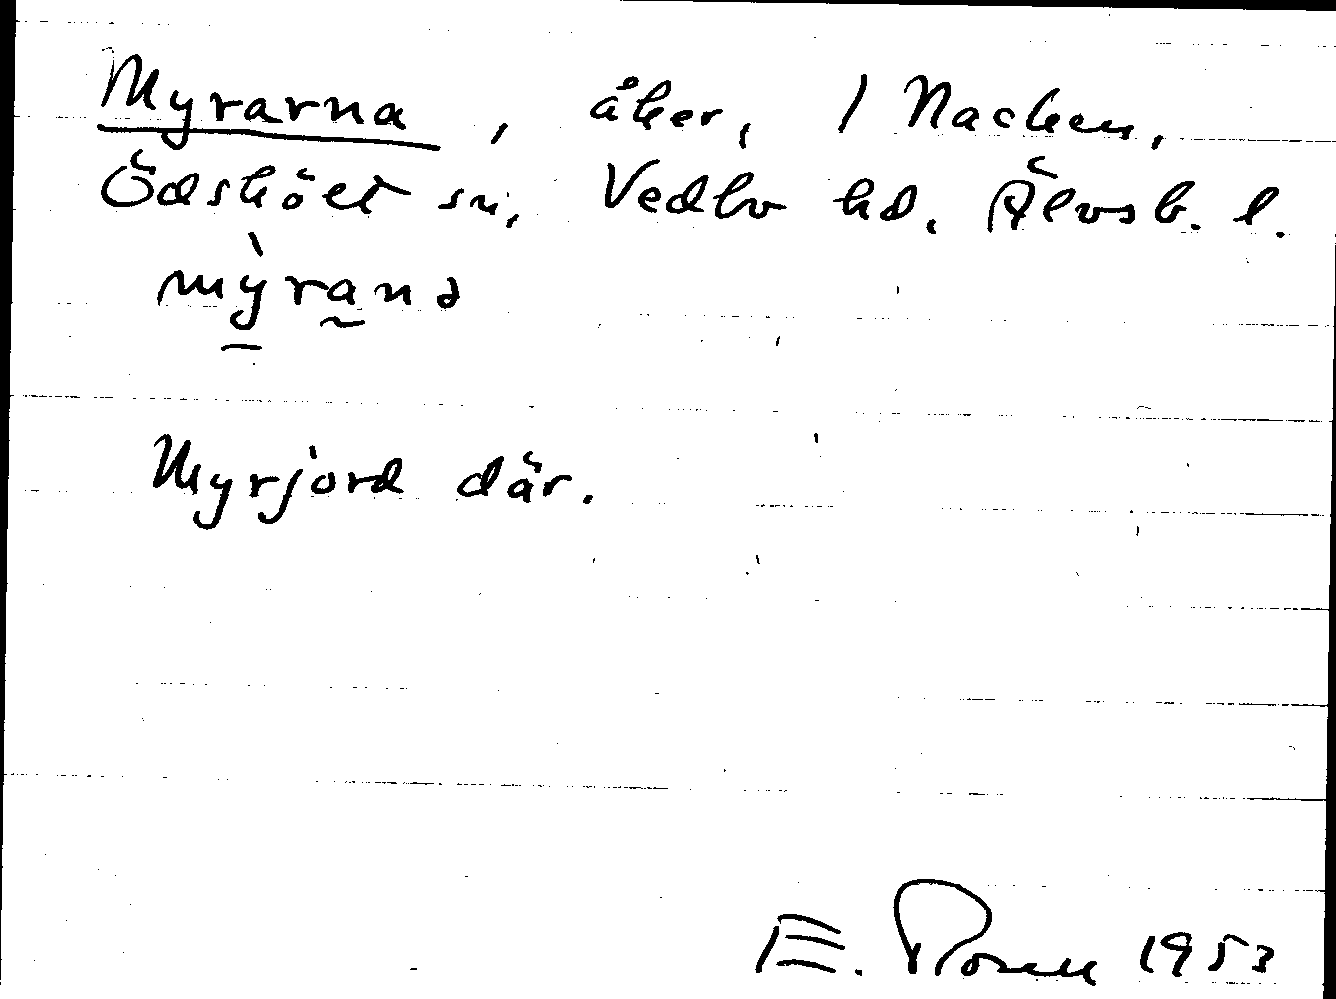 Myrarna, åker, 1 Nacken,
Ödskölt sn, Vedbo hd. Älvsb. l.
mỳrana
Myrjord där.
E. Rosell 1953